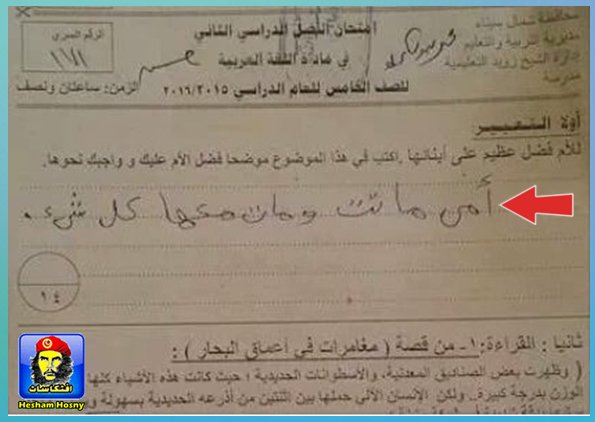 محافظة شمال سيناء
مديرية التربية والتعليم
إدارة الشيخ زويد التعليمية
مدرسة
امتحان الفصل الدراسي الثاني
في مادة اللغة العربية
للصف الخامس للعام الدراسي ٢٠١٦/٢٠١٥
الرقم السري
١٧١
الزمن: ساعتان ونصف
أولا التعبير
للأم فضل عظيم على أبنائها .اكتب في هذا الموضوع موضحا فضل الأم عليك و واجبك نحوها.
أمى ماتت ومات معها كل شىء.
١٤
ثانيا : القراءة :١- من قصة ( مغامرات فى أعماق البحار ) :
( وظهرت بعض الصناديق المعدنية، والأسطوانات الحديدية ؛ حيث كانت هذه الأشياء كلها
الوزن بدرجة كبيرة.. ولكن الإنسان الآلى حملها بين اثنتين من أذرعه الحديدية بسهولة و
افتكاسات
Hesham Hosny